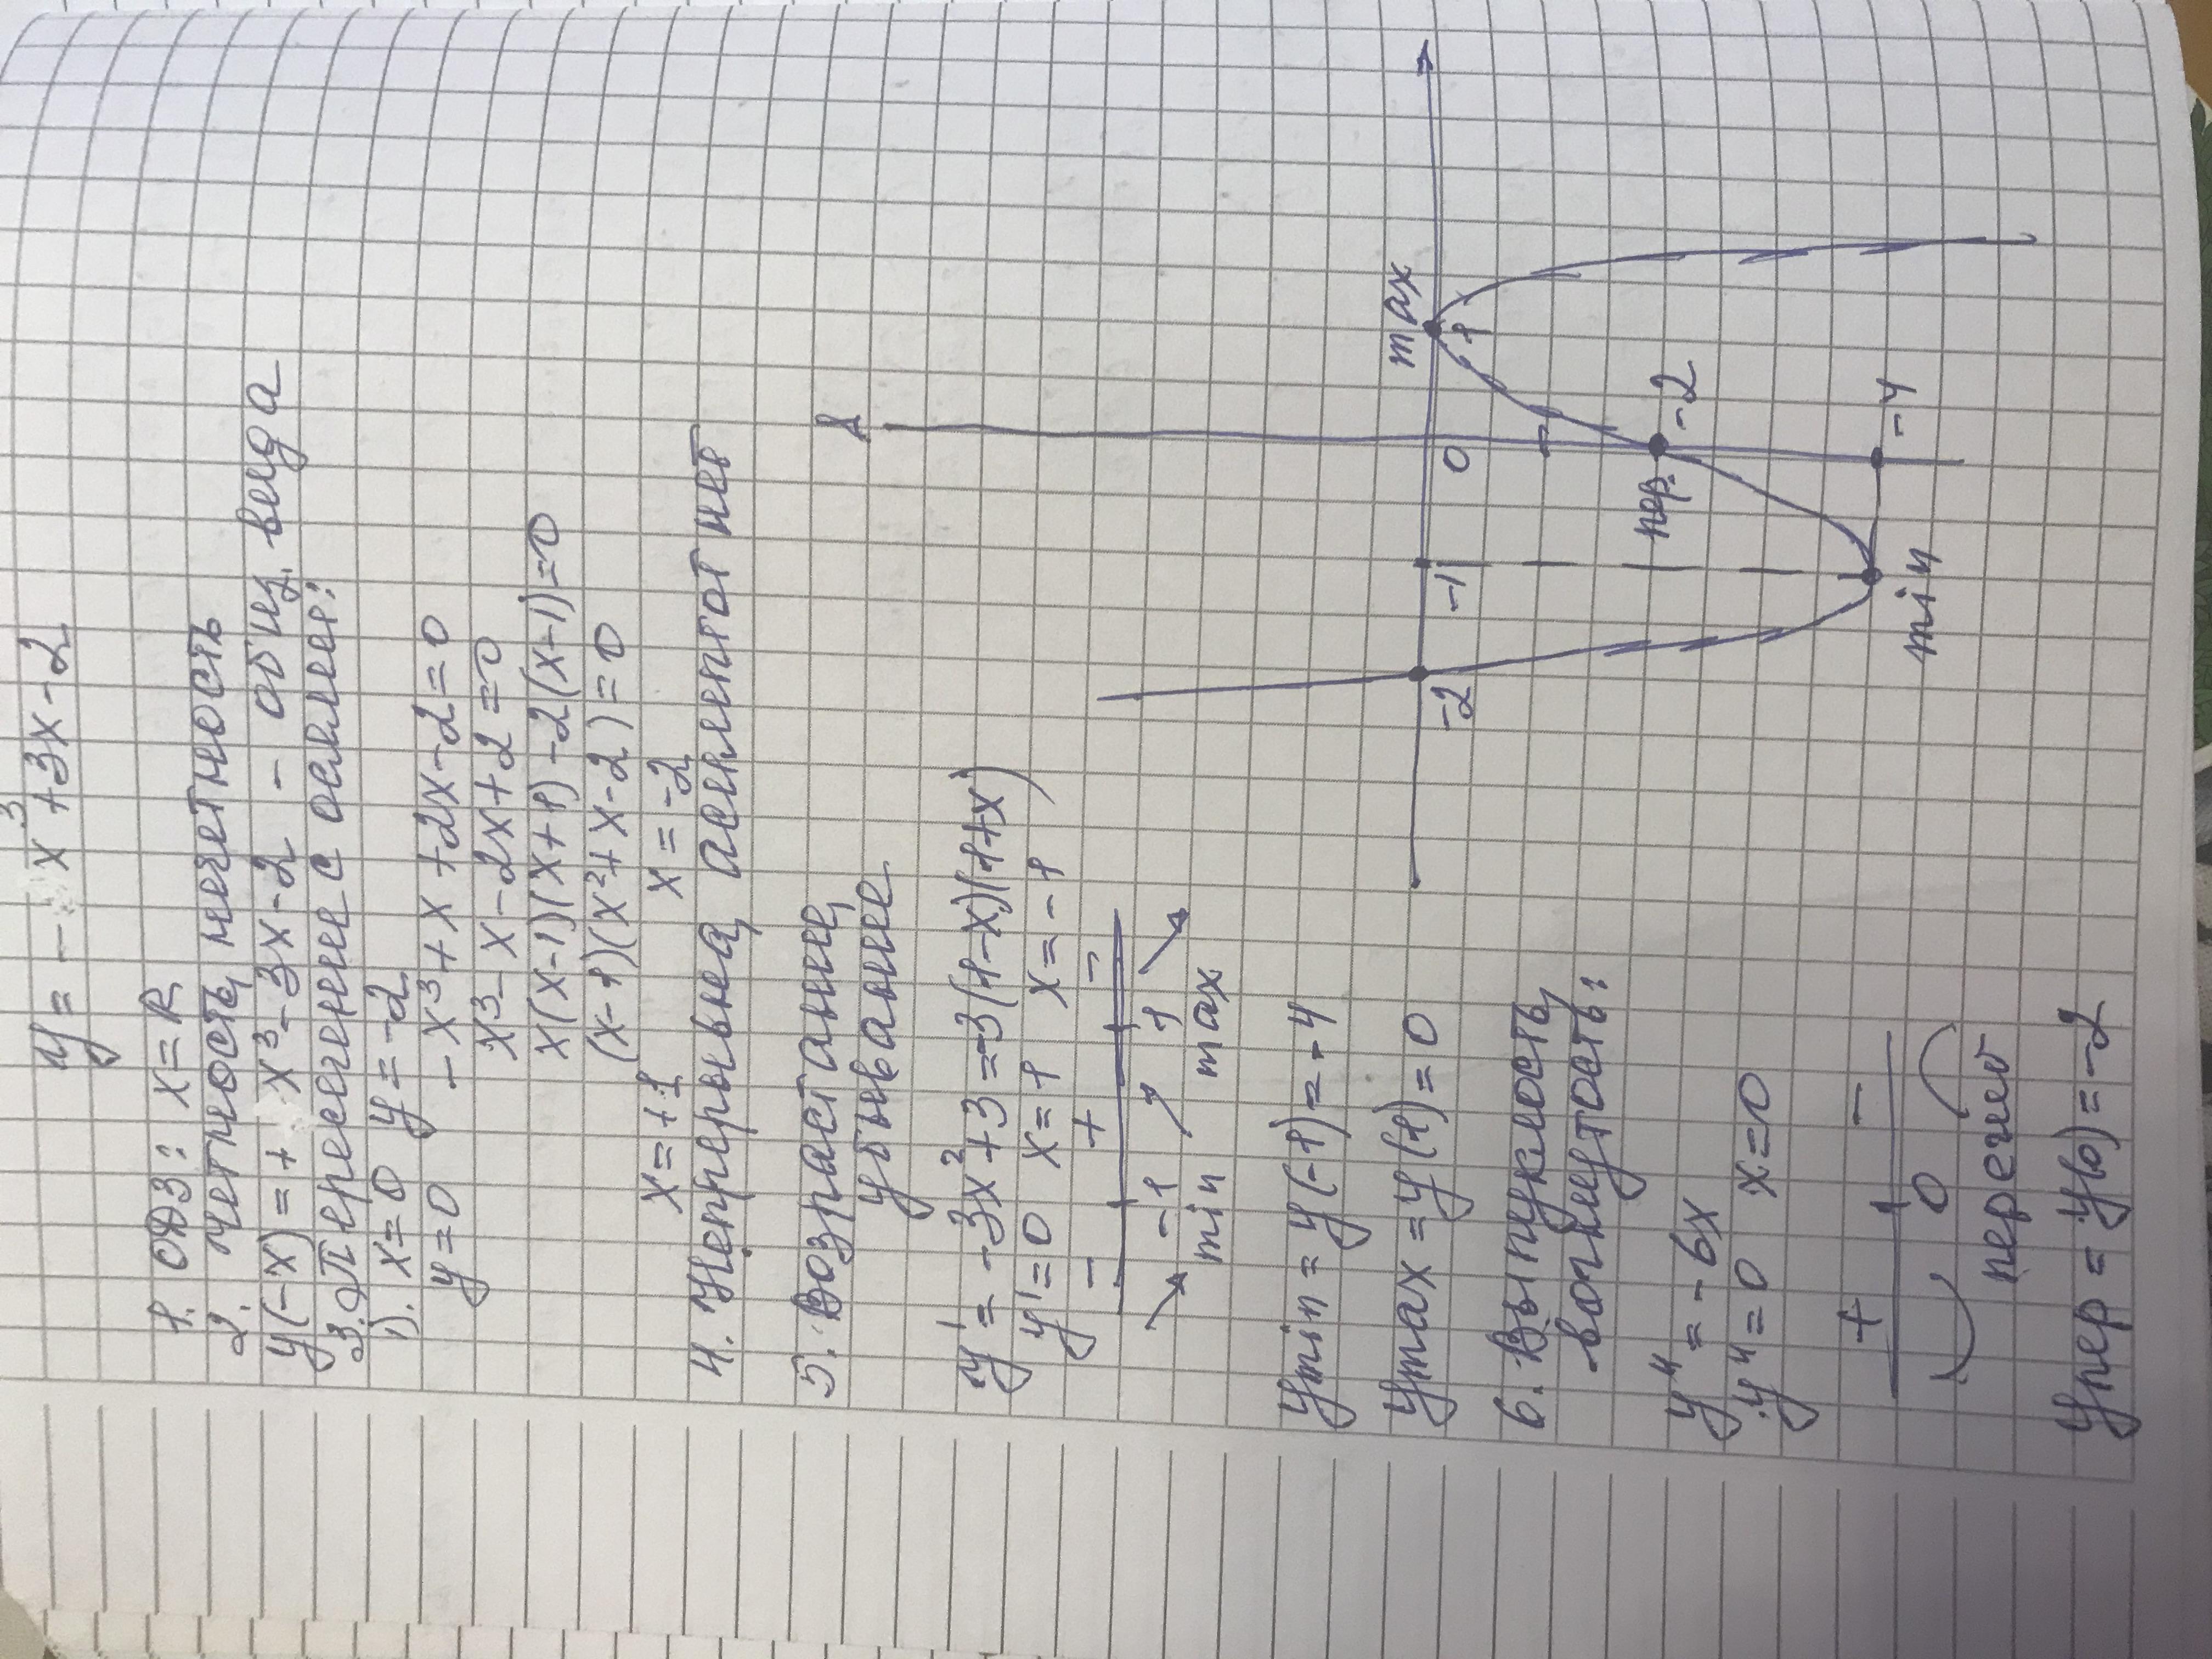 y = - x³ + 3x - 2
1. ОДЗ: x = R
2. четность, нечетность
y(-x) = + x³ - 3x - 2 - общ. вида
3. Пересечение с осями:
1). x = 0 y = -2
y = 0 - x³ + x + 2x - 2 = 0
x³ - x - 2x + 2 = 0
x(x-1)(x+1) - 2(x-1) = 0
(x-1)(x² + x - 2) = 0
x = +1 x = -2
4. Непрерывна, асимптот нет
5. Возрастание,
убывание
y' = -3x² + 3 = 3(1-x)(1+x)
y' = 0 x = 1 x = -1
- + -
-1 1
min max
ymin = y(-1) = -4
ymax = y(1) = 0
6. Выпуклость,
вогнутость:
y'' = -6x
y'' = 0 x = 0
+ -
0
перегиб
yпер = y(0) = -2
max
-2 -1 0 1
пер. -2
-4
min